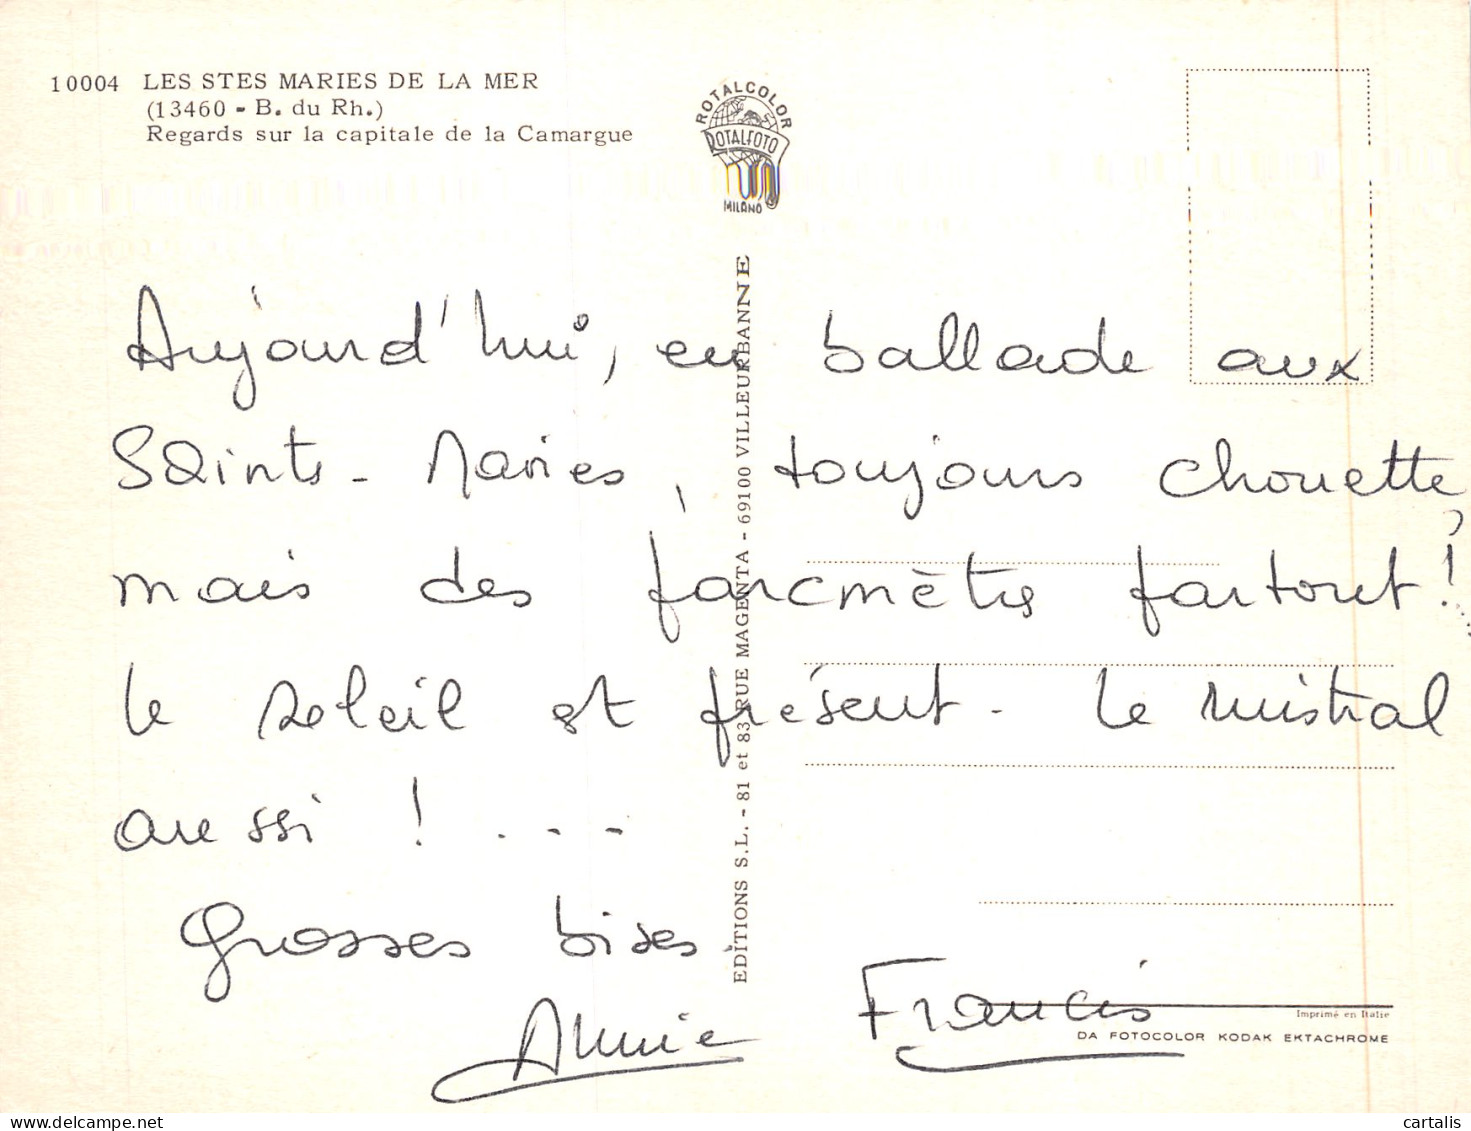 10004 LES STES MARIES DE LA MER
(13460 - B. du Rh.)
Regards sur la capitale de la Camargue
ROTALCOLOR
ROTALFOTO
MILANO
EDITIONS S.L. - 81 et 83 RUE MAGENTA - 69100 VILLEURBANNE
Aujourd'hui, en ballade aux
Saints-Maries, toujours chouette,
mais des parcmètres partout!
le soleil est présent - le mistral
aussi ! ...
Grosses bises.
Annie Francis
Imprimé en Italie
DA FOTOCOLOR KODAK EKTACHROME
cartalis